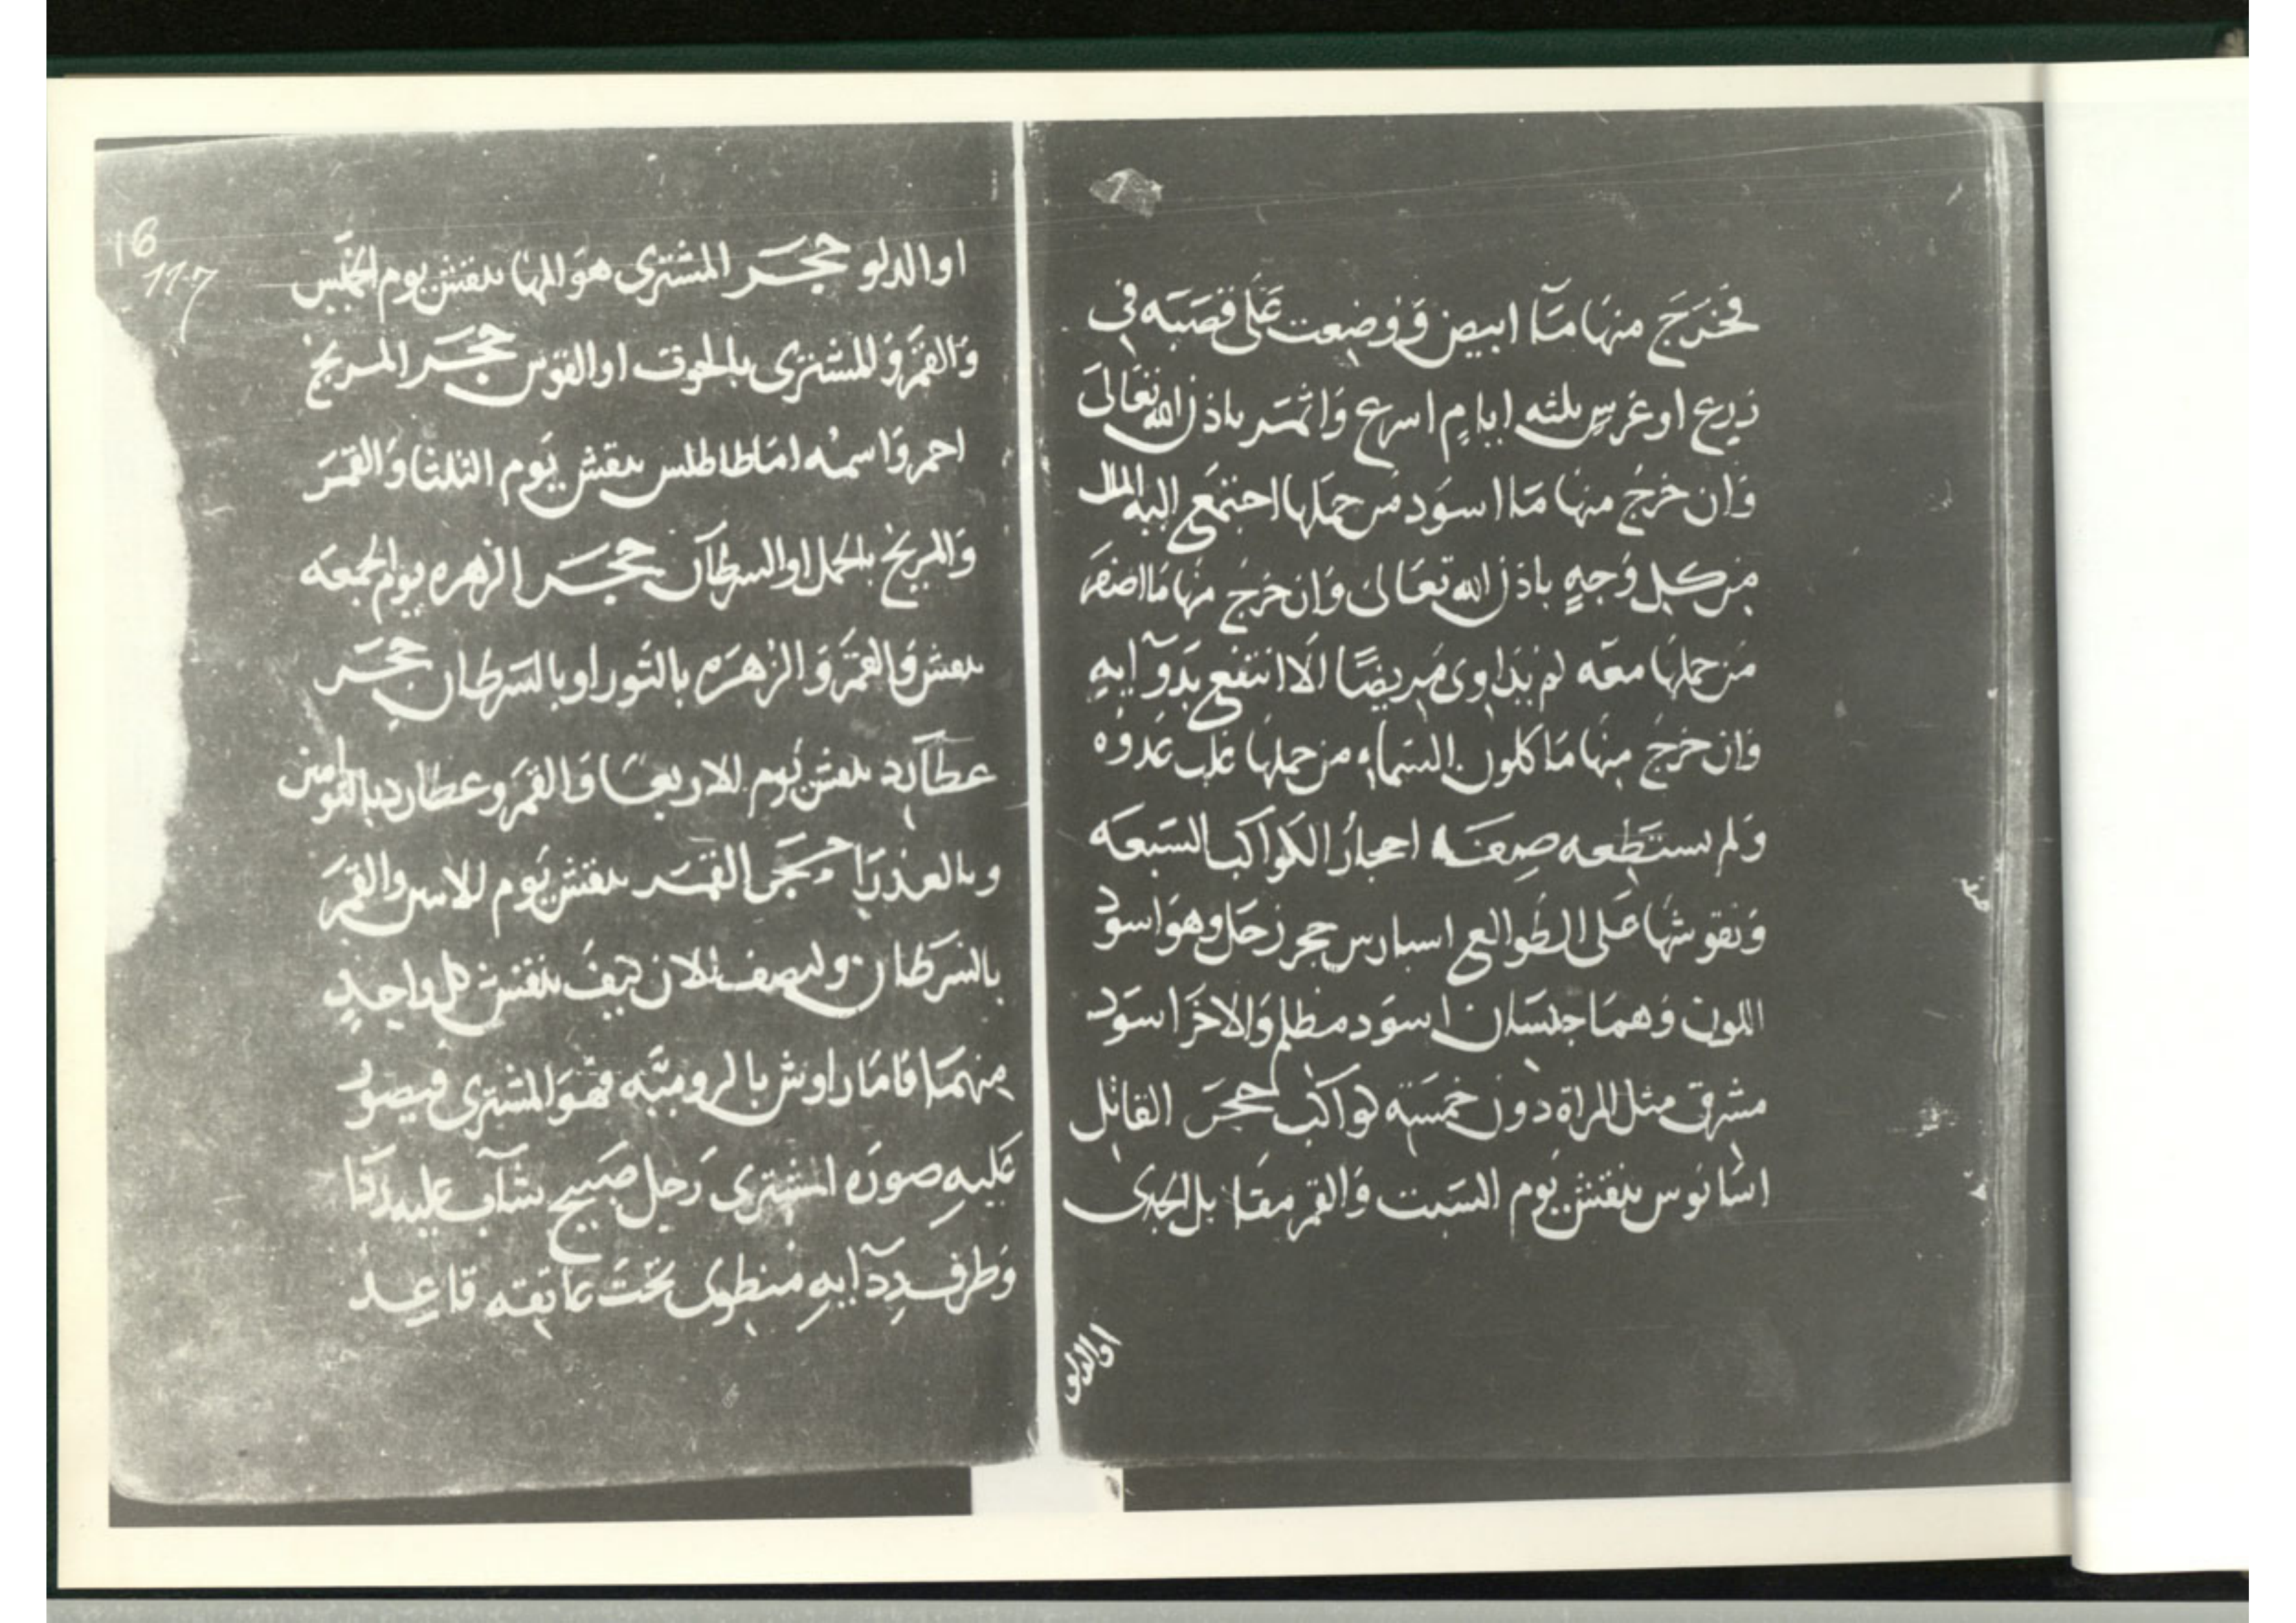 فخَرَجَ منهَا مَآ ابيض وَوُضِعت عَلَى قصَبَه في
زرع او غرسٍ ثلثه ايامٍ اسرع وَاثمَر باذن الله تعَالىَ
وَان خرجُ منها مَا اسوَد مَن حمَلها اجتمَع اليه المال
مِن كلِ وُجهٍ باذن الله تعَالىَ وَان خرجُ منها مَا اصفَر
مَن حملهَا معَه لم يدَاوى مَريضًا الَا انتفع بدَوآيهِ
وَان خرجُ منِهَا مَا كلون السمآءِ من حملها غلب عَدوُه
وَلم يستَطِعه صِفَه احجارُ الكوَاكب السَبعَه
وَنقوشهَا عَلى الطوالع اسبارس حجر زحَل وهوَ اسود
اللون وَهمَا جنسَان اسوَد مظلم وَالاخَر اسوَد
مشرق مثل المراة دون خمسَته كواكب حجَر القاتل
اسَانوس ينقش يَوم السَبت وَالقمر مقَا بل الجدى
او الدلو
او الدلو حجَر المشترى هوَ المها ينقش يوم الخميس
وَالقمَر وَالمشترى بالحوت او القوَس حجَر المريخ
احمر وَاسمُه اماطاطلس ينقش يَوم الثلثا وَالقمَر
وَالمريخ بالحمل او السرطآن حجَر الزهره يوم الجمعَه
ينقش وَالقمَر وَالزهرَه بالثور او بالسَرطان حجَر
عطآرِد ينقش يَوم الاربعَا وَالقمَر وعطارد بالتوامين
وبالعذرَا حجَر القمَر ينقش يَوم الاثنين والقمَر
بالسَرَطان ولنصف الان كيفَ ينقش كل واحِدٍ
مِنهمَا فامَا راوش بالروميَّه فهوَ المشترى فيصوَر
عَليهِ صورَه المشترى رَجل صَبيح شآب عليه رِدَا
وَطرف رِدَآيهِ منطوى تحتَ عَاتِقه قاعِد
16
117